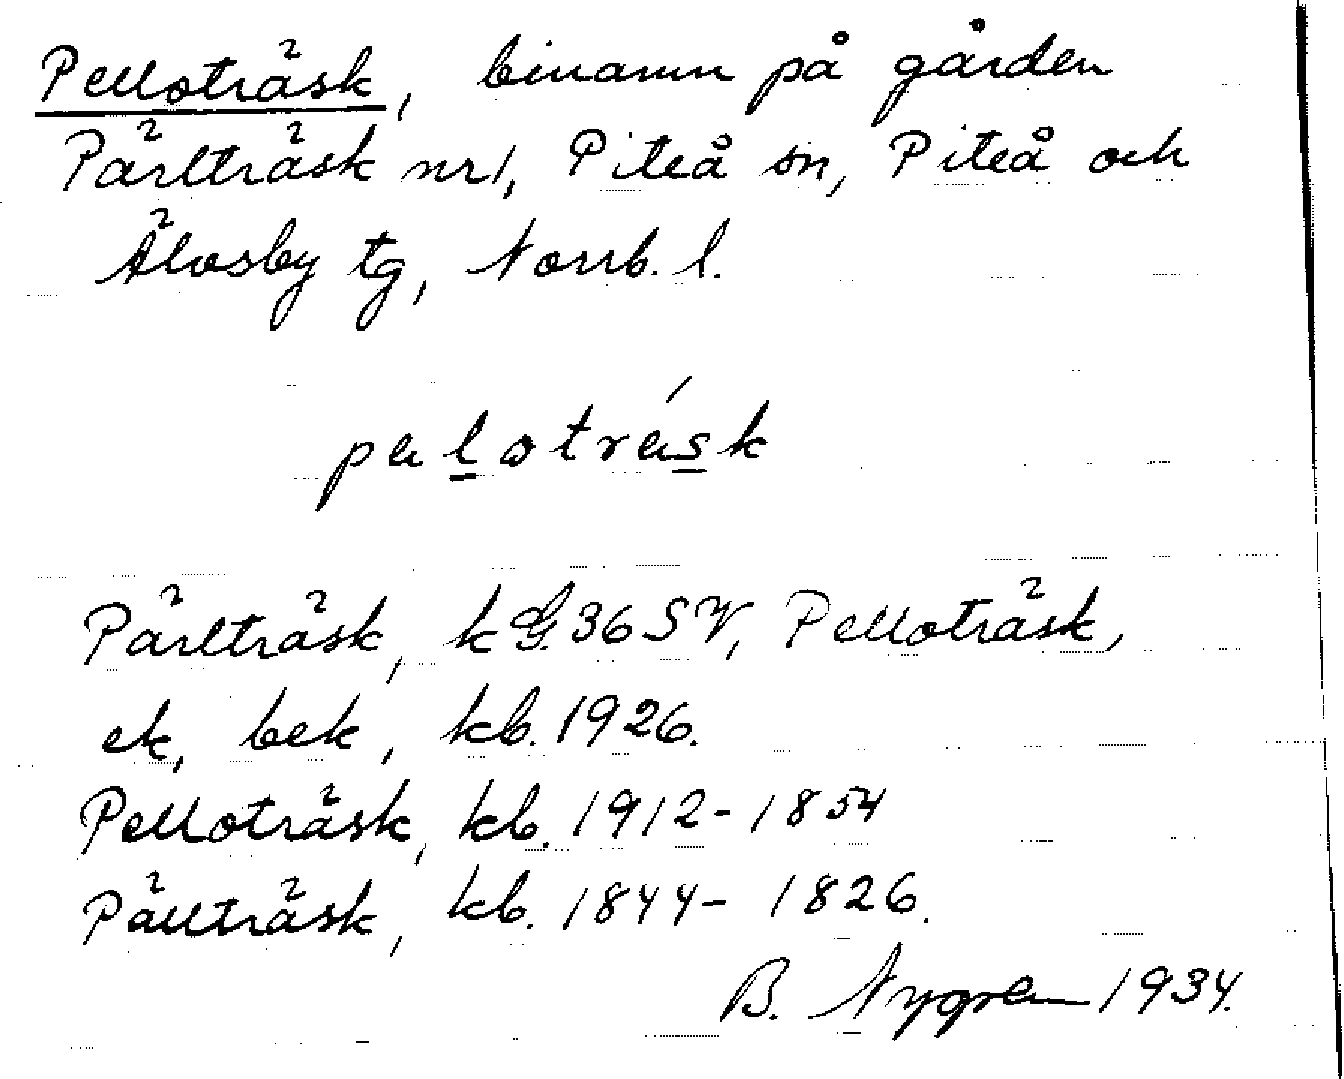 Pelloträsk, binamn på gården
Pärlträsk nr 1, Piteå sn, Piteå och
Älvsby tg, Norrb. l.
pælotræ´sk
Pärlträsk, k G. 36 SV, Pelloträsk,
ek, bek, kb. 1926.
Pelloträsk, kb. 1912-1854
Pällträsk, kb. 1844-1826.
B. Nygren 1934.